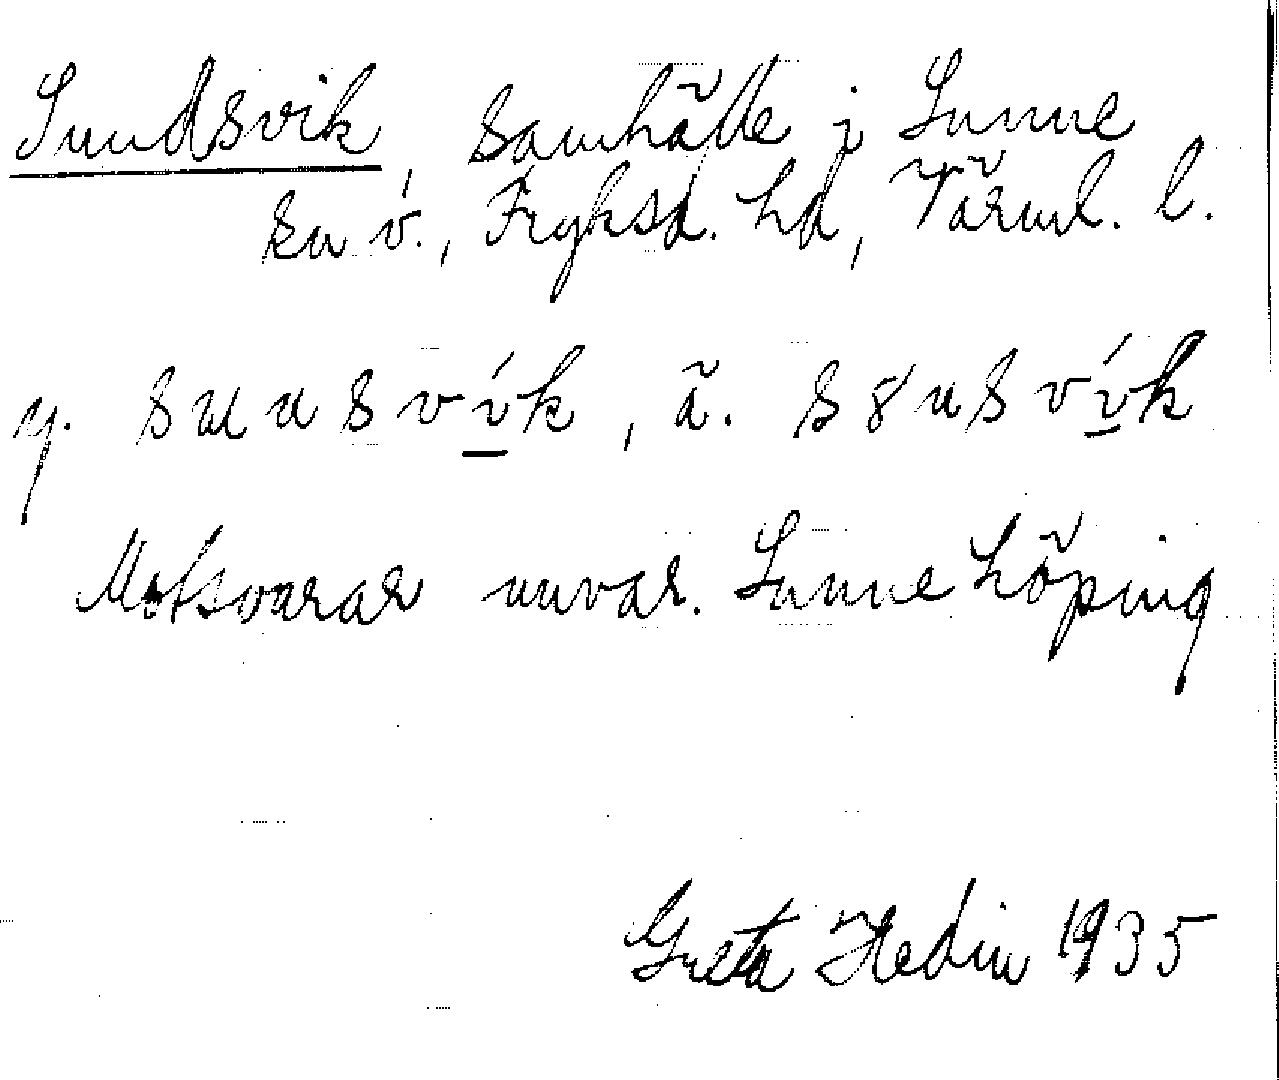 Sundsvik, samhälle i Sunne
sn o., Fryksd. hd, Värml. l.
y. sunsvík, ä. s8nsvík
Motsvarar nuvar. Sunne köping
Greta Hedin 1935